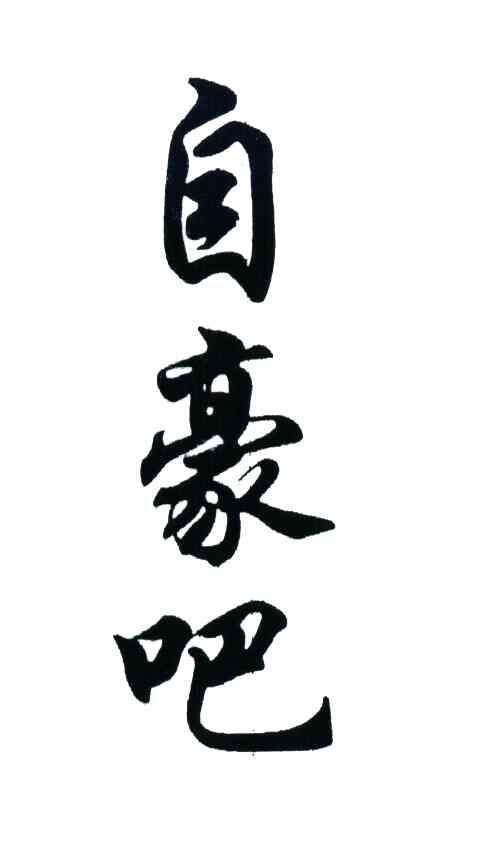 自豪吧